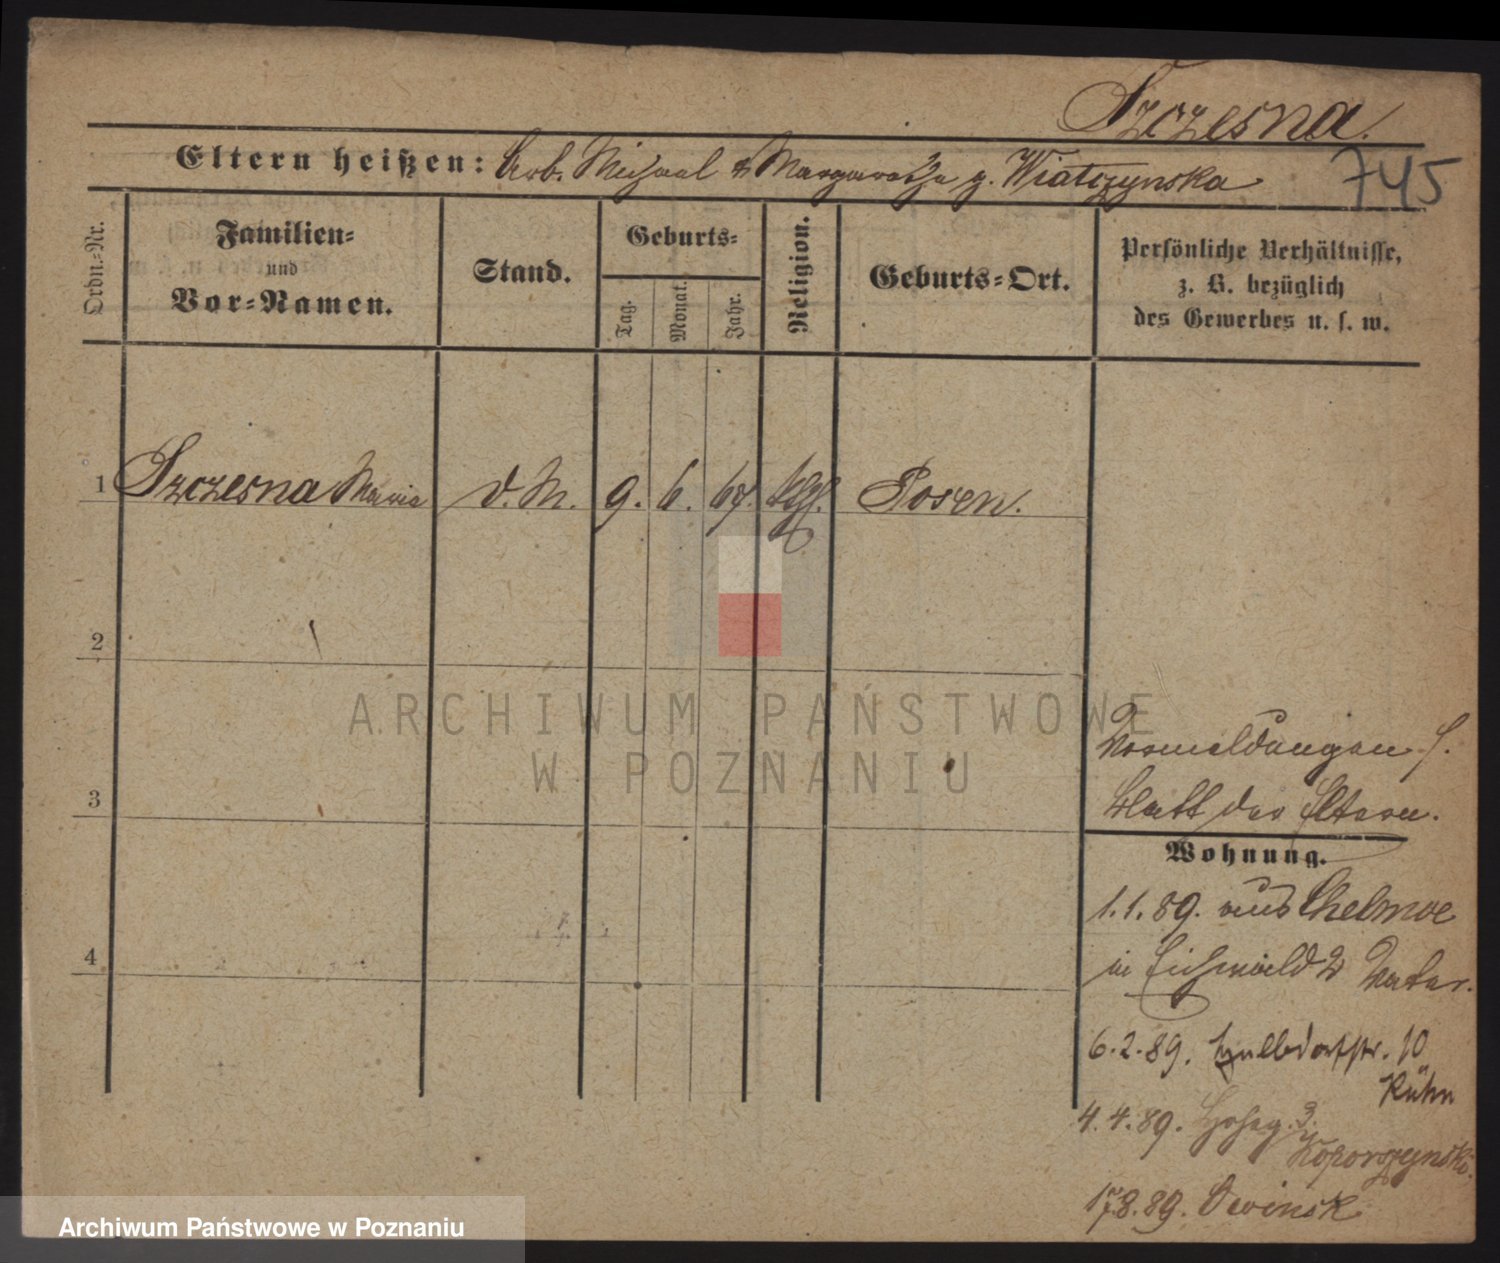 Szczesna.
745
Eltern heißen: Arb. Michael & Margarethe g. Wiatczynska
Ordn.-Nr.
Familien-
und
Vor-Namen.
Stand.
Geburts-
Tag.
Monat.
Jahr.
Religion.
Geburts-Ort.
Persönliche Verhältnisse,
z. B. bezüglich
des Gewerbes u. s. w.
1 Szczesna Maria d. M. 9. 6. 67. kth. Posen.
2
3
4
Vormeldungen s.
Blatt der Eltern.
Wohnung.
1.1.89. aus Chelmce
in Eichwald 2 Vater.
6.2.89. 10
Kühn
4.4.89. 3.
17.8.89. Owinsk
ARCHIWUM PAŃSTWOWE
W POZNANIU
Archiwum Państwowe w Poznaniu